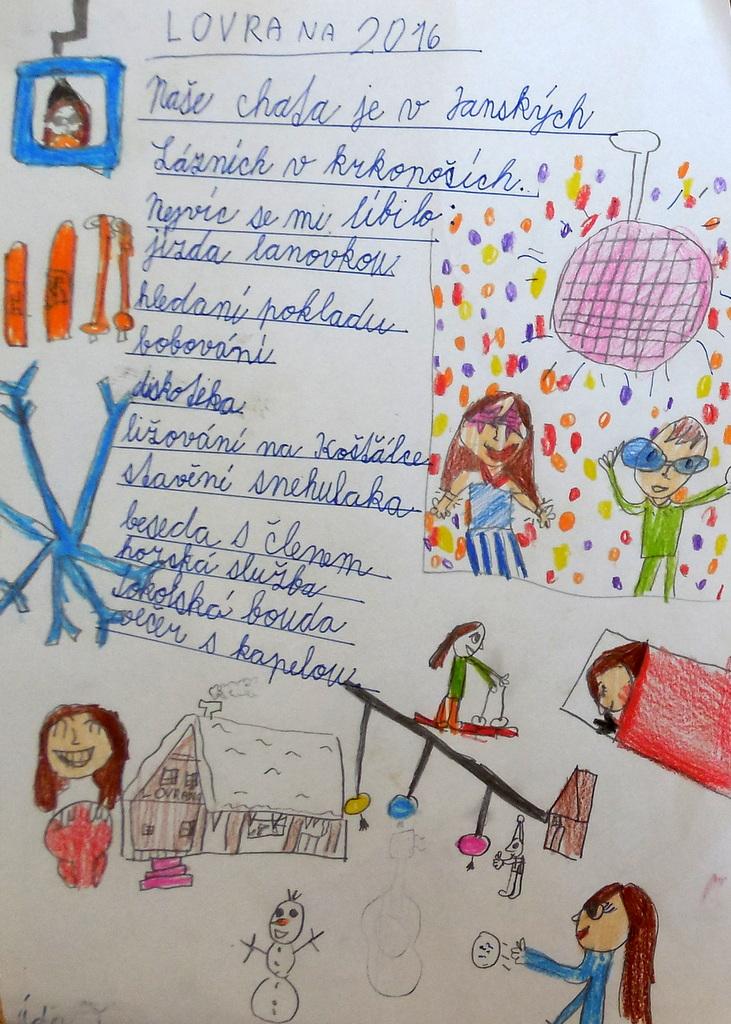 LOVRANA 2016
Naše chata je v Janských
Lázních v krkonoších.
Nejvíc se mi líbilo:
jízda lanovkou
hledaní pokladu
bobování
diskotéka
ližování na Košťálce
stavění snehulaka
beseda s členem
horská služba
Sokolská bouda
večer s kapelou
LOVRANA